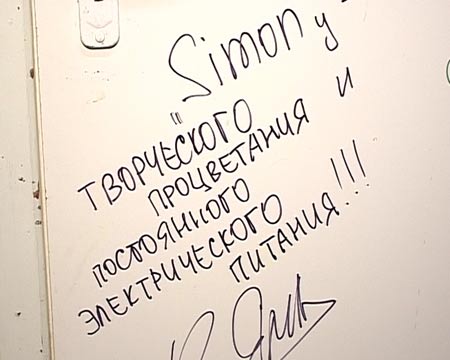 "Simonу -
ТВОРЧЕСКОГО
ПРОЦВЕТАНИЯ И
ПОСТОЯННОГО
ЭЛЕКТРИЧЕСКОГО
ПИТАНИЯ!!!